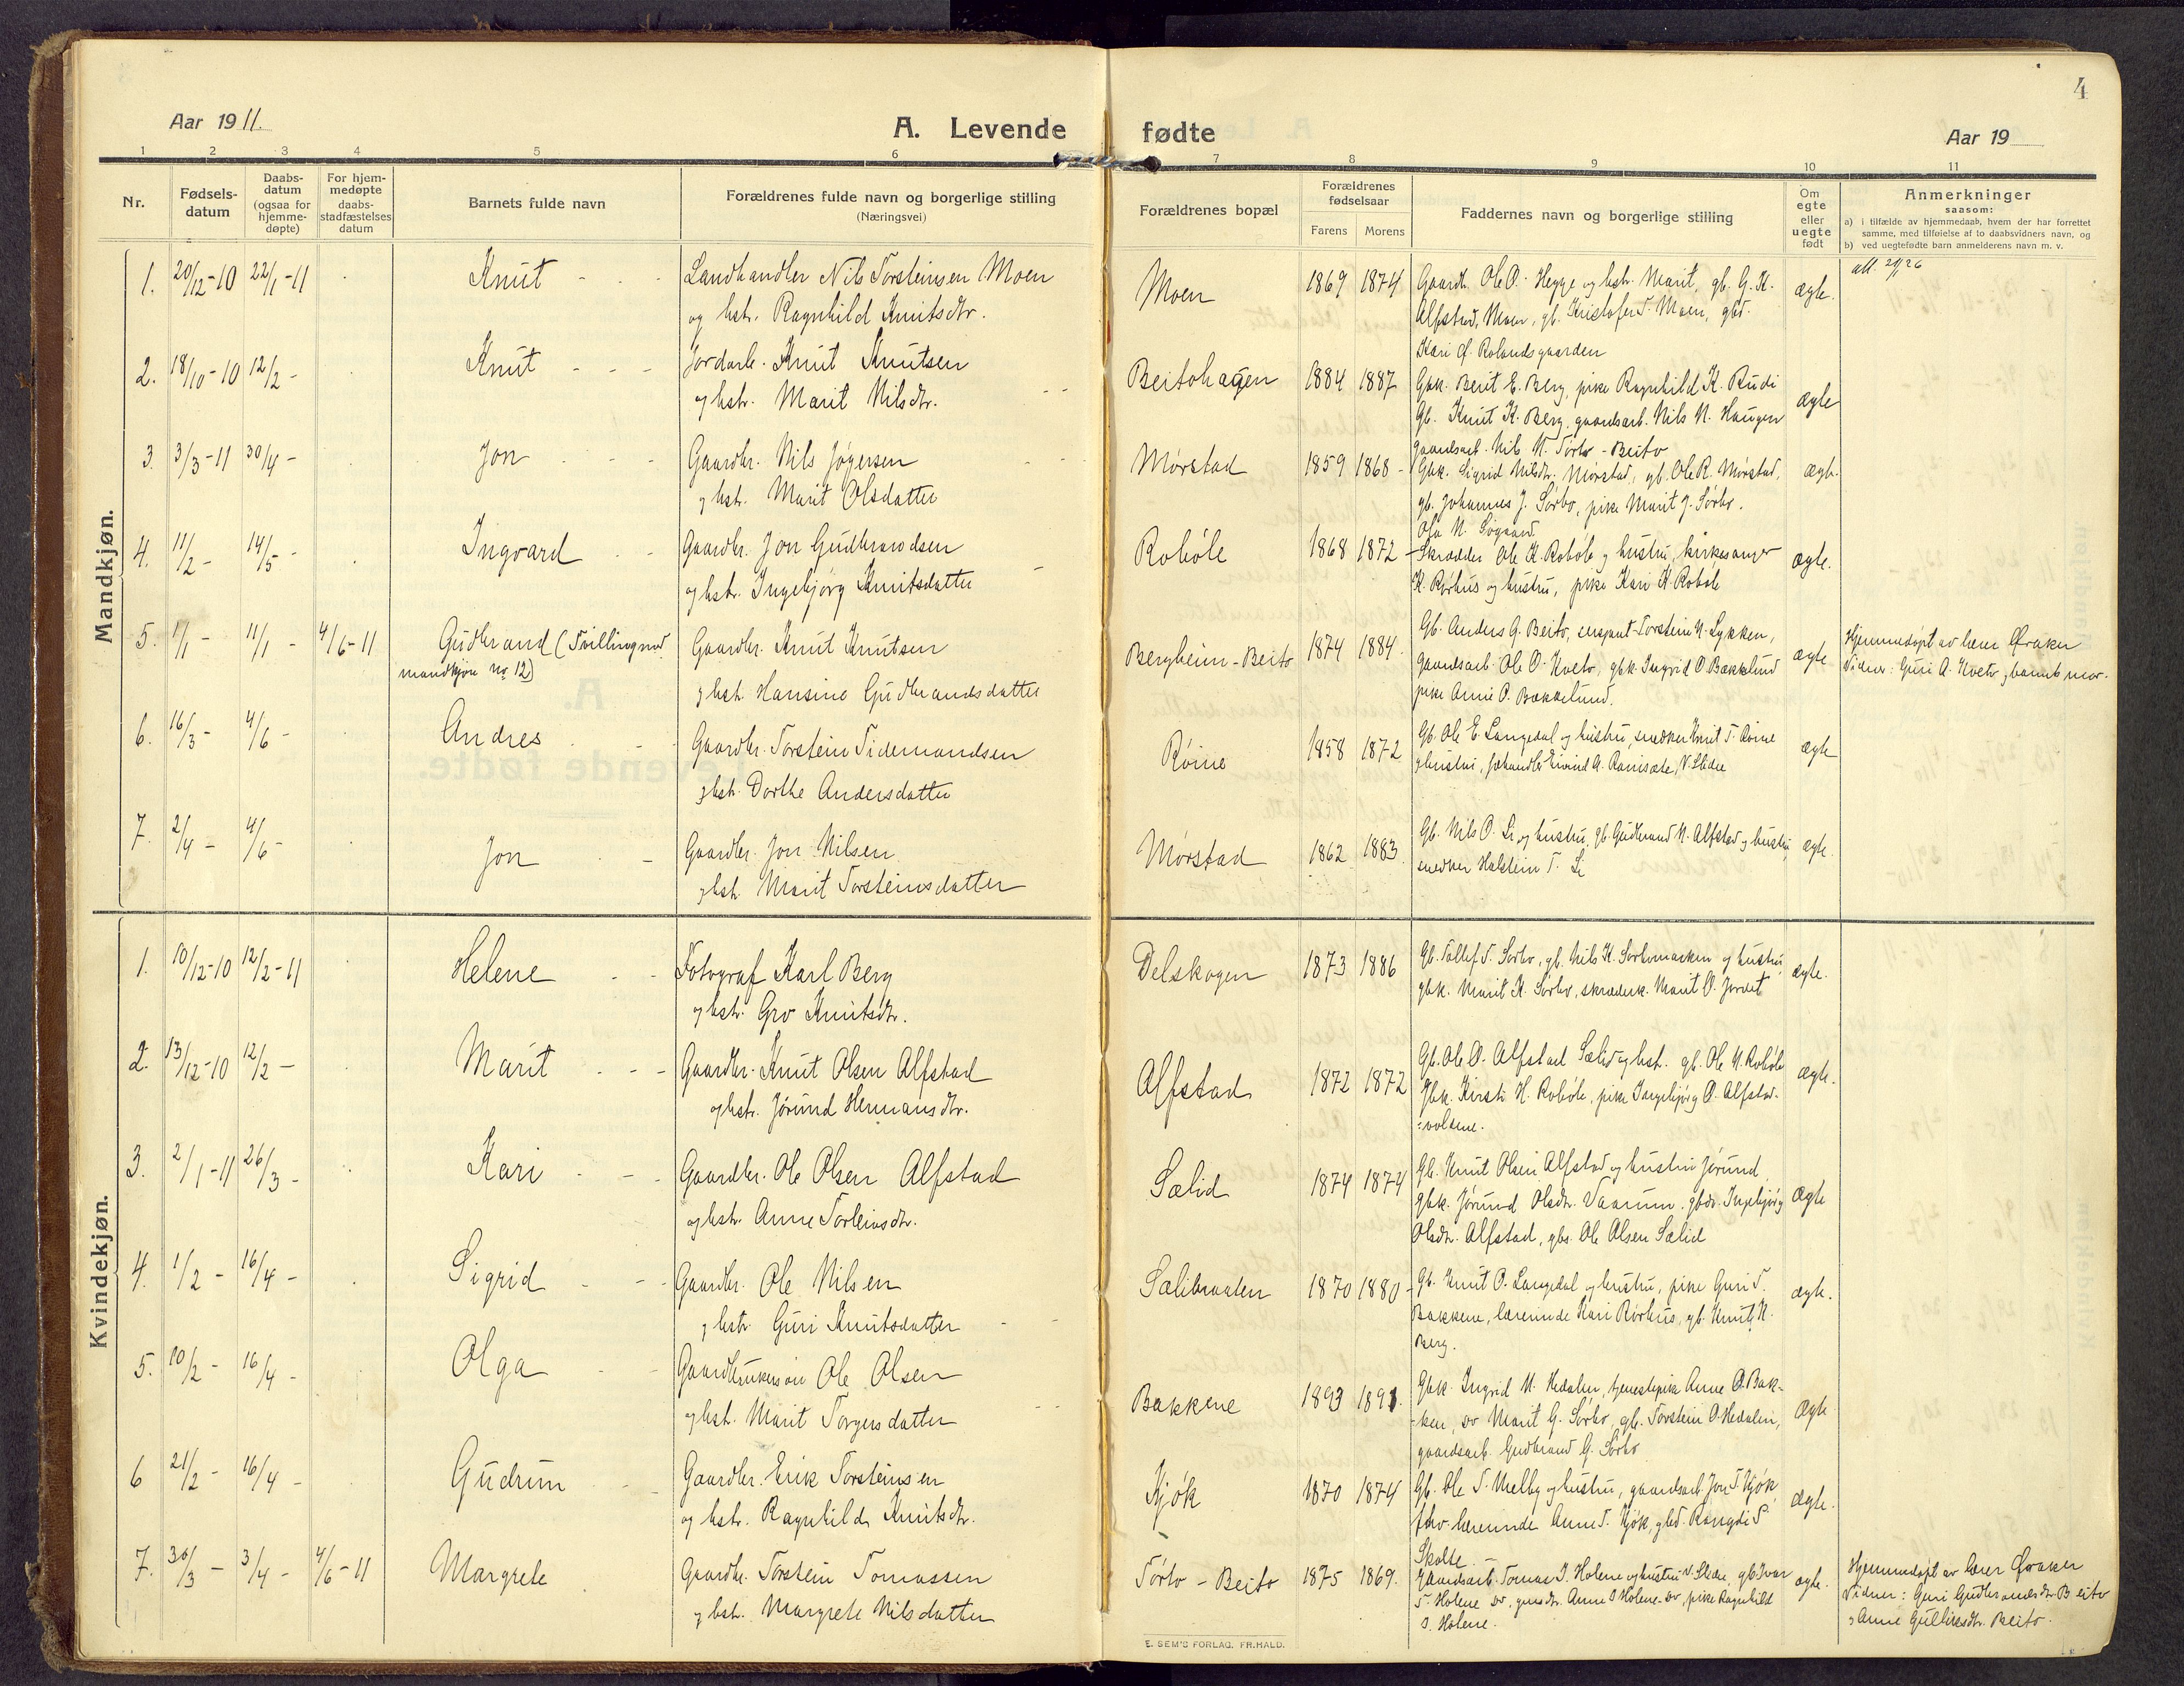 4
Aar 1911.
A. Levende fødte
Aar 19
1 2 3 4 5 6 7 8 9 10 11
Nr.
Fødsels-
datum
Daabs-
datum
(ogsaa for
hjemme-
døpte)
For hjem-
medøpte
daabs-
stadfæstelses
datum
Barnets fulde navn
Forældrenes fulde navn og borgerlige stilling
(Næringsvei)
Forældrenes bopæl
Forældrenes
fødselsaar
Farens Morens
Faddernes navn og borgerlige stilling
Om
egte
eller
uegte
født
Anmerkninger
saasom:
a) i tilfælde av hjemmedaab, hvem der har forrettet
samme, med tilføielse af to daabsvidners navn, og
b) ved uegtefødte barn anmelderens navn m. v.
Mandkjøn.
1. 20/12-10 22/1-11 Knut Landhandler Nils Torsteinsen Moen
og hstr. Ragnhild Knutsdtr.
Moen 1869 1874 Gaardb. Ole O. Hegge og hstr. Marit, gb. G. K.
Alfstad, Moen, gb. Kristofer T. Moen, gbd.
Kari Rolandsgaarden
ægte.
att.
2. 18/10-10 12/2- Knut Jordarb. Knut Knutsen
og hstr. Marit Nilsdtr.
Beitohagen 1884 1887 Gbk. Berit E. Berg, pike Ragnhild K. Rudi
Gb. Knut K. Berg, gaardsarb. Nils N. Haugen
gaardsarb. Nils N. Tørto - Beito
ægte
3. 3/3-11 30/4- Jon Gaardbr. Nils Jøgersen
og hst. Marit Olsdatter
Mørstad 1859 1868- Gbk. Sigrid Nilsdtr. Mørstad, gb. Ole R. Mørstad,
gb. Johannes J. Sørbo, pike Marit J. Sørbo.
Ola N. Søgaard
ægte.
4. 11/2- 14/5- Ingvard Gaardbr. Jon Gudbrandsen
og hstr. Ingebjørg Knutsdatter
Robøle 1868 1872 Skrædder Ole K. Robøle og hustru, kirkesanger
K. Rørhus og hustru, pike Kari K. Robøle
ægte.
5. 1/1- 11/1- 4/6-11 Gudbrand (Tvilling med
mandkjøn no 12)
Gaardbr. Knut Knutsen
og hst. Hansine Gudbrandsdatter
Bergheim-Beito 1874 1884. Gb. Anders G. Beito, sersjant Torstein N. Lykken,
gaardsarb. Ole O. Kveto, gbk. Ingrid O. Bakkelund
pike Anne O. Bakkelund.
ægte
Hjemmedøpt av lærer Øraker
Vidner: Guri A. Kveto og barnets mor.
6. 16/3- 4/6- Andres Gaardbr. Torstein Tidemandsen
og hst. Dorthe Andersdatter
Røine 1858 1872 Gb. Ole E. Langedal og hustru, snedker Knut T. Røine
og hustru, fehandler Eivind A. Ranisæte, V. Slidre
ægte
7. 2/4- 4/6- Jon Gaardbr. Jon Nilsen
og hst. Marit Torsteinsdatter
Mørstad 1862 1883. Gb. Nils O. Li og hustru, gb. Gudbrand N. Alfstad og hustru
snedker Halstein T. Li
ægte.
Kvindekjøn.
1. 10/12-10 12/2-11 Helene Fotograf Karl Berg
og hstr. Gro Knutsdtr.
Delskogen 1873 1886 Gb. Tollef T. Sørbo, gb. Nils K. Sørbomarken og hustru
gbk. Marit K. Sørbo, skræderk. Marit O. Jordet
ægte.
2. 13/12-10 12/2- Marit Gaardbr. Knut Olsen Alfstad
og hstr. Jørund Hermansdtr.
Alfstad 1872 1872 Gb. Ole O. Alfstad Sælid og hst. gb. Ole N. Robøle
Gbk. Kirsti H. Robøle, pike Ingebjørg O. Alfstad-
:voldene.
ægte.
3. 2/1-11 26/3- Kari Gaardbr. Ole Olsen Alfstad
og hstr. Anne Torleivsdtr.
Sælid 1874 1874 Gb. Knut Olsen Alfstad og hustru Jørund
gbk. Jørund Olsdtr. Vaarum, gbdr. Ingebjørg
Olsdtr. Alfstad, gbs. Ole Olsen Sælid
ægte
4. 1/2- 16/4- Sigrid Gaardbr. Ole Nilsen
og hstr. Guri Knutsdatter
Sælibraaten 1870 1880- Gb. Knut O. Langedal og hustru, pike Guri T.
Bakkene, lærerinde Kari Rørhus, gb. Knut K.
Berg.
ægte.
5. 10/2- 16/4- Olga Gaardbrukersøn Ole Olsen
og hst. Marit Torgersdatter
Bakkene 1893 1891. Gbk. Ingrid N. Hedalen, tjenestepike Anne O. Bak-
ken, sv Marit G. Sørbo, gb. Torstein O. Hedalen,
gaardsarb. Gudbrand G. Sørbo
ægte
6 21/2- 16/4- Gudrun Gaardbr. Erik Torsteinsen
og hstr. Ragnhild Knutsdtr.
Kjøk 1870 1874 Gb. Ole T. Melby og hustru, gaardsarb. Jon T. Kjøk
fhv. lærerinde Anne T. Kjøk, gbd. Rangdi S.
Skolte
ægte.
7. 30/3- 3/4- 4/6-11 Margrete Gaardbr. Torstein Tomassen
og hst. Margrete Nilsdatter
Tørto - Beito 1875 1869. Gaardsarb. Tomas I. Holene og hustru V. Slidre, gb Ivar
T. Holene sv, gaardsdtr. Anne S Holene sv, pike Ragnhild
S. Holene.
ægte.
Hjemmedøpt av lærer Øraker
Vidner: Guri Gudbrandsdtr. Beito
og Anne Gulliksdtr. Beito.
E. SEM'S FORLAG, FR.HALD.